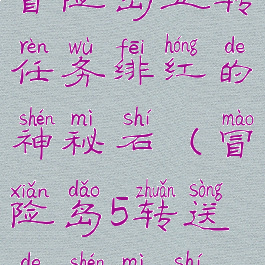 冒险岛5转
rèn wù fēi hóng de
任务绯红的
shén mì shí mào
神秘石（冒
xiǎn dǎo zhuǎn sòng
险岛5转送
de shén mì shí